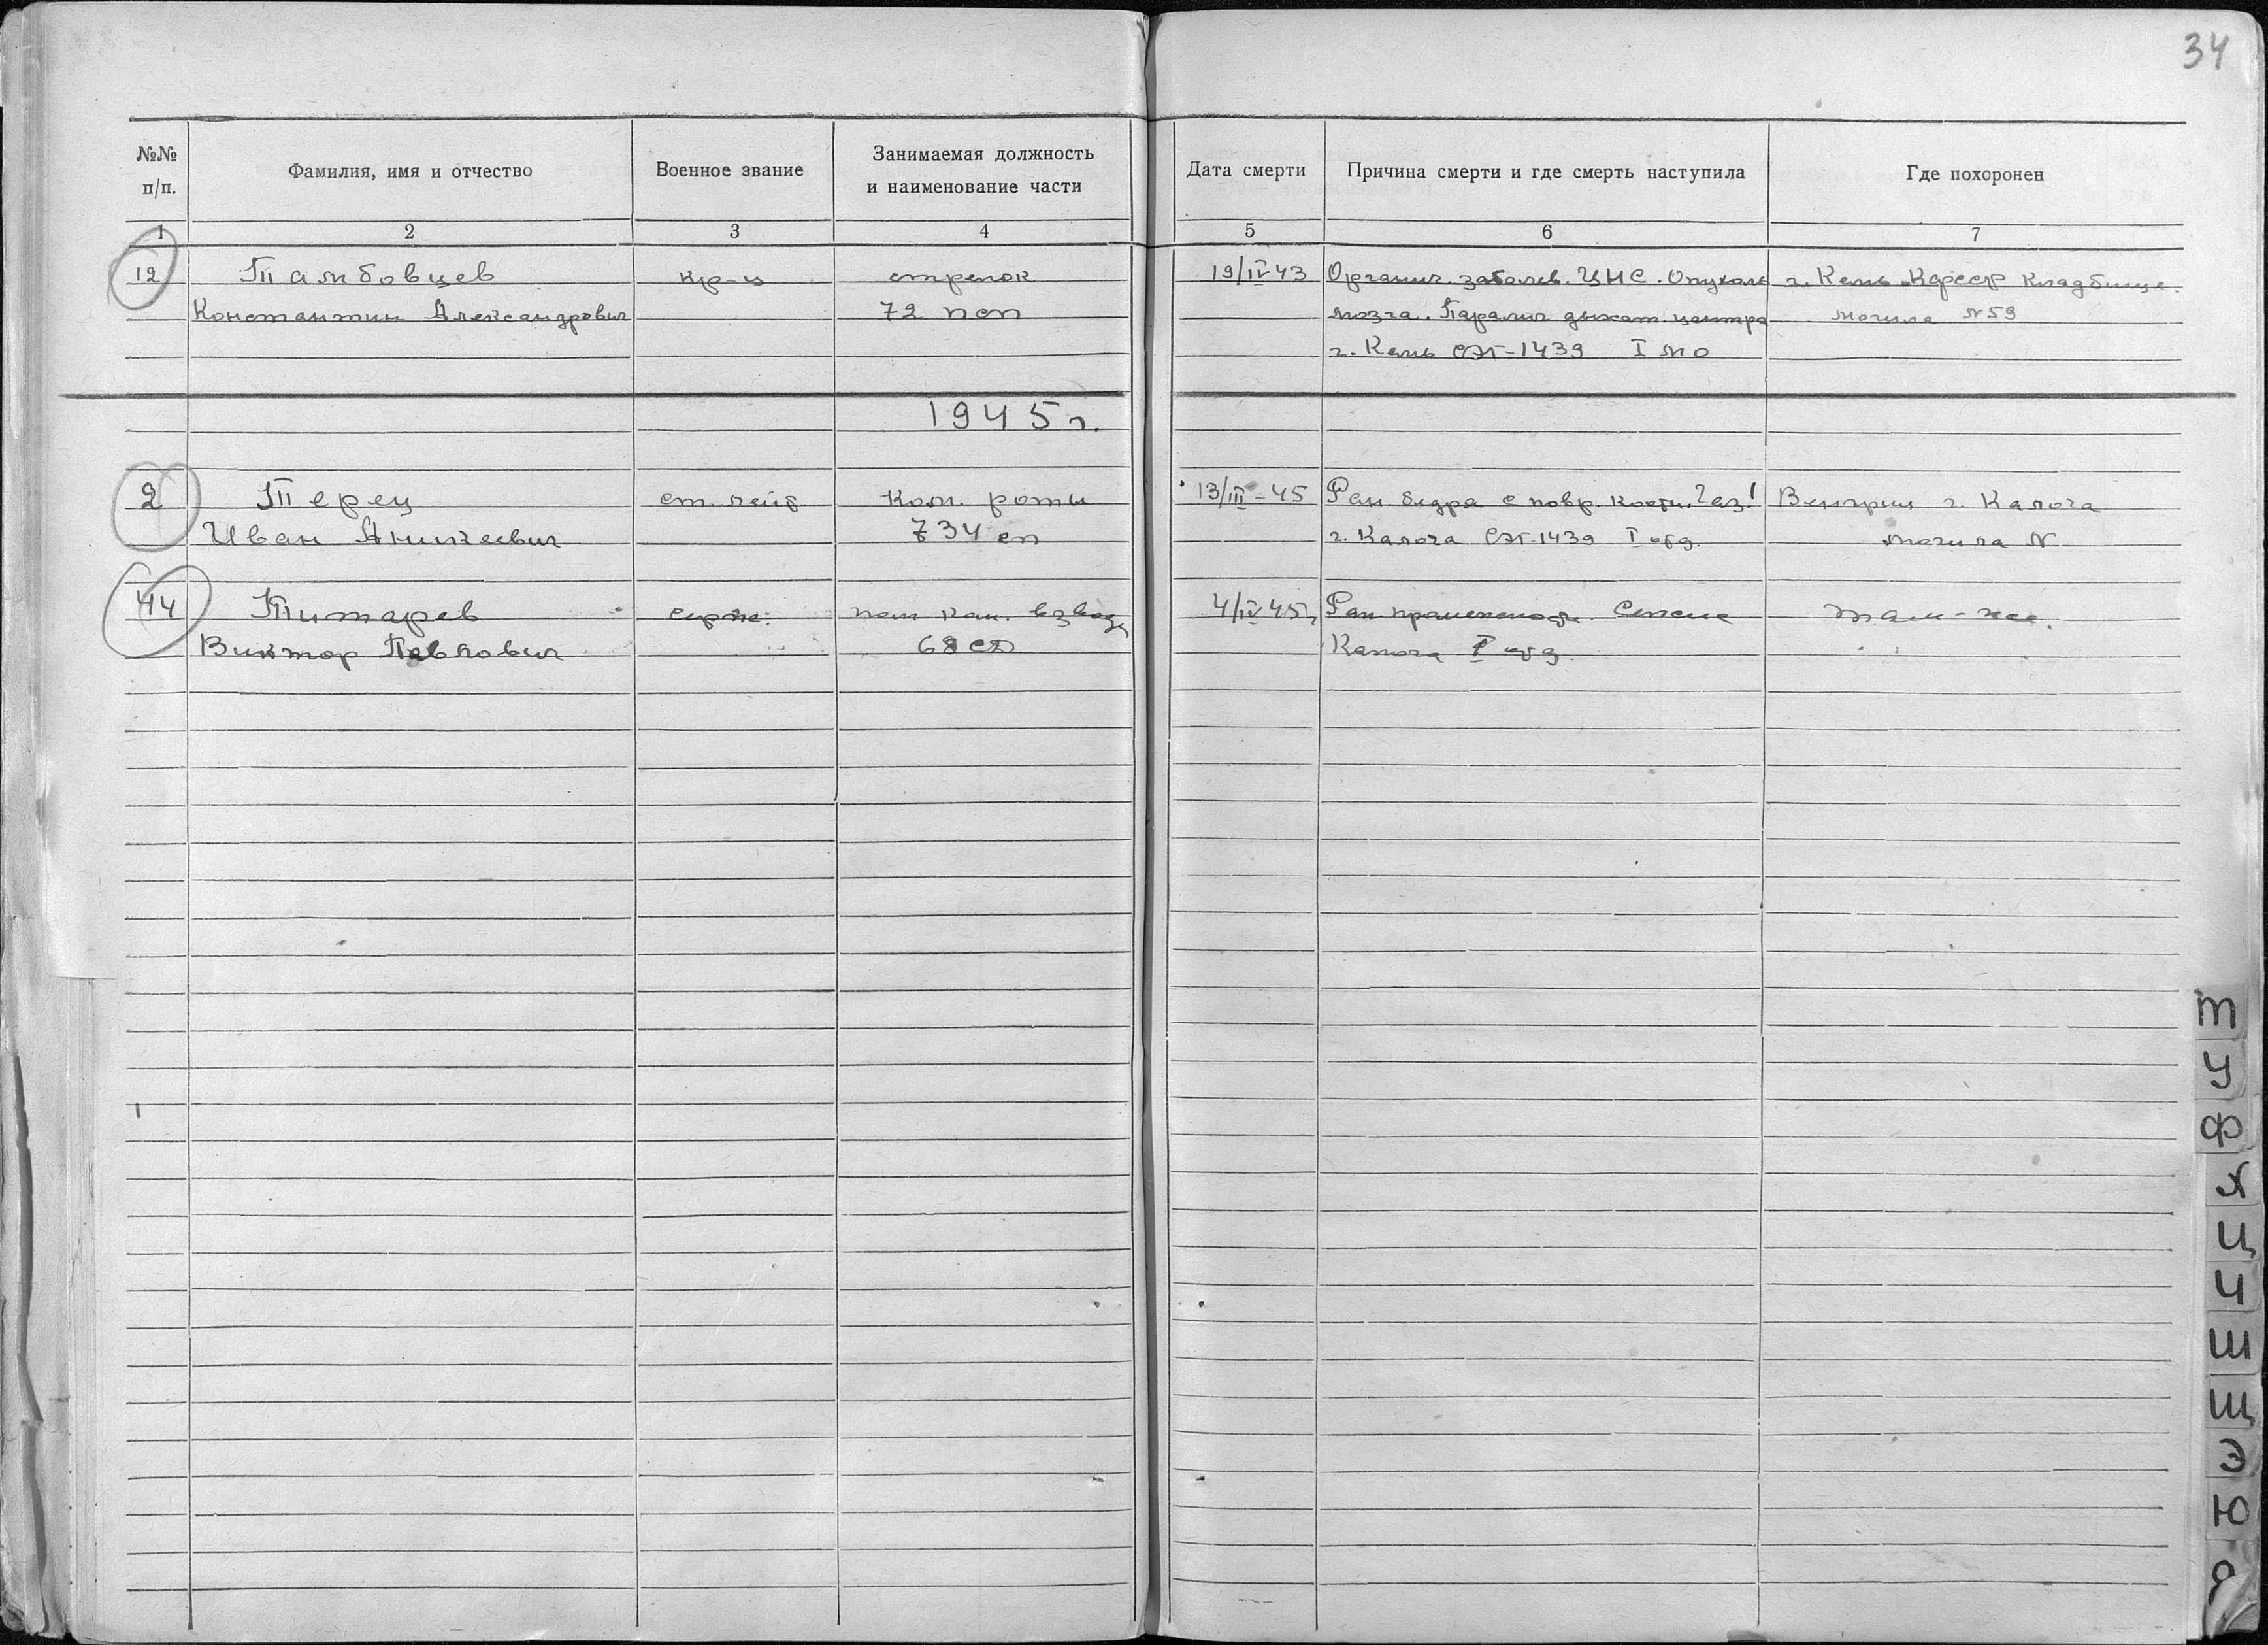 34
№№ п/п.
Фамилия, имя и отчество
Военное звание
Занимаемая должность и наименование части
Дата смерти
Причина смерти и где смерть наступила
Где похоронен
1 2 3 4 5 6 7
12 Тамбовцев кр-ц стрелок 19/IV-43 Органич. заболев. ЦНС. Опухоль г. Кемь Кфсср Кладбище.
Константин Александрович 72 поп мозга. Паралич дыхат. центра могила №59
г. Кемь СЭГ-1439 I МО
1945 г.
2 Терец ст. лейт Ком. роты 13/III-45 Ран. бедра с повр. кости. Газ! Венгрия г. Калоча
Иван Аникеевич 734 сп г. Калоча СЭГ-1439 I отд. могила №
44 Титарев серж. пом ком. взвода 4/IV 45 г Ран. промежности. Сепсис там-же.
Виктор Павлович 68 сд Калоча I отд.
Т
У
Ф
Х
Ц
Ч
Ш
Щ
Э
Ю